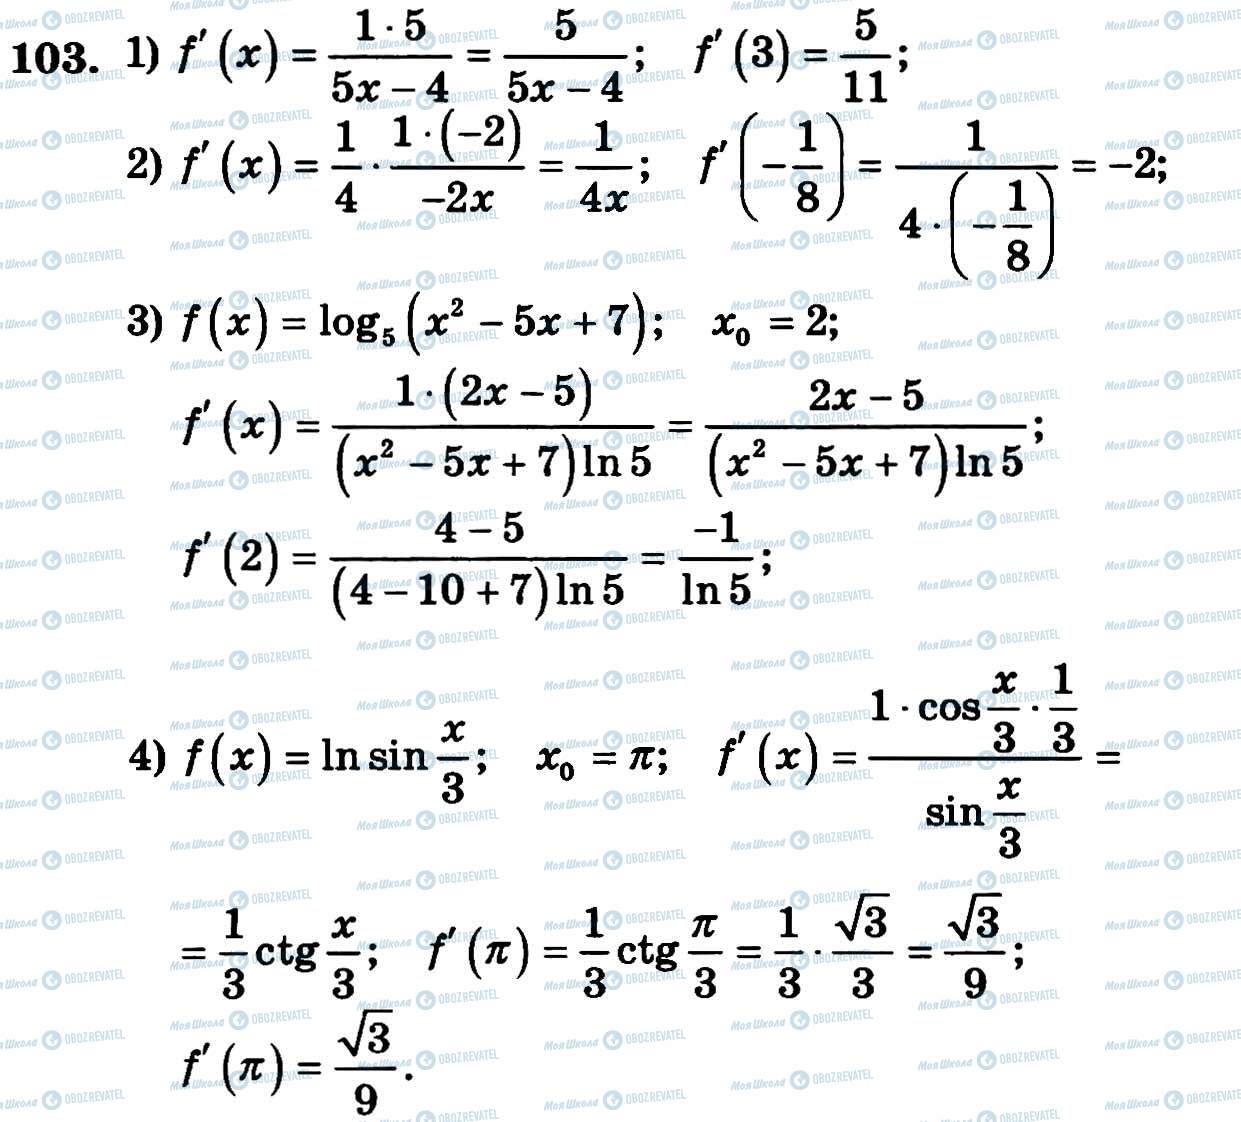 103. 1) f′(x) = (1 · 5)/(5x − 4) = 5/(5x − 4); f′(3) = 5/11;
2) f′(x) = 1/4 · (1 · (−2))/(−2x) = 1/(4x); f′(−1/8) = 1/(4 · (−1/8)) = −2;
3) f(x) = log₅(x² − 5x + 7); x₀ = 2;
f′(x) = (1 · (2x − 5))/((x² − 5x + 7) ln 5) = (2x − 5)/((x² − 5x + 7) ln 5);
f′(2) = (4 − 5)/((4 − 10 + 7) ln 5) = −1/(ln 5);
4) f(x) = ln sin x/3; x₀ = π; f′(x) = (1 · cos x/3 · 1/3)/(sin x/3) =
= 1/3 ctg x/3; f′(π) = 1/3 ctg π/3 = 1/3 · √3/3 = √3/9;
f′(π) = √3/9.
МояШкола OBOZREVATEL